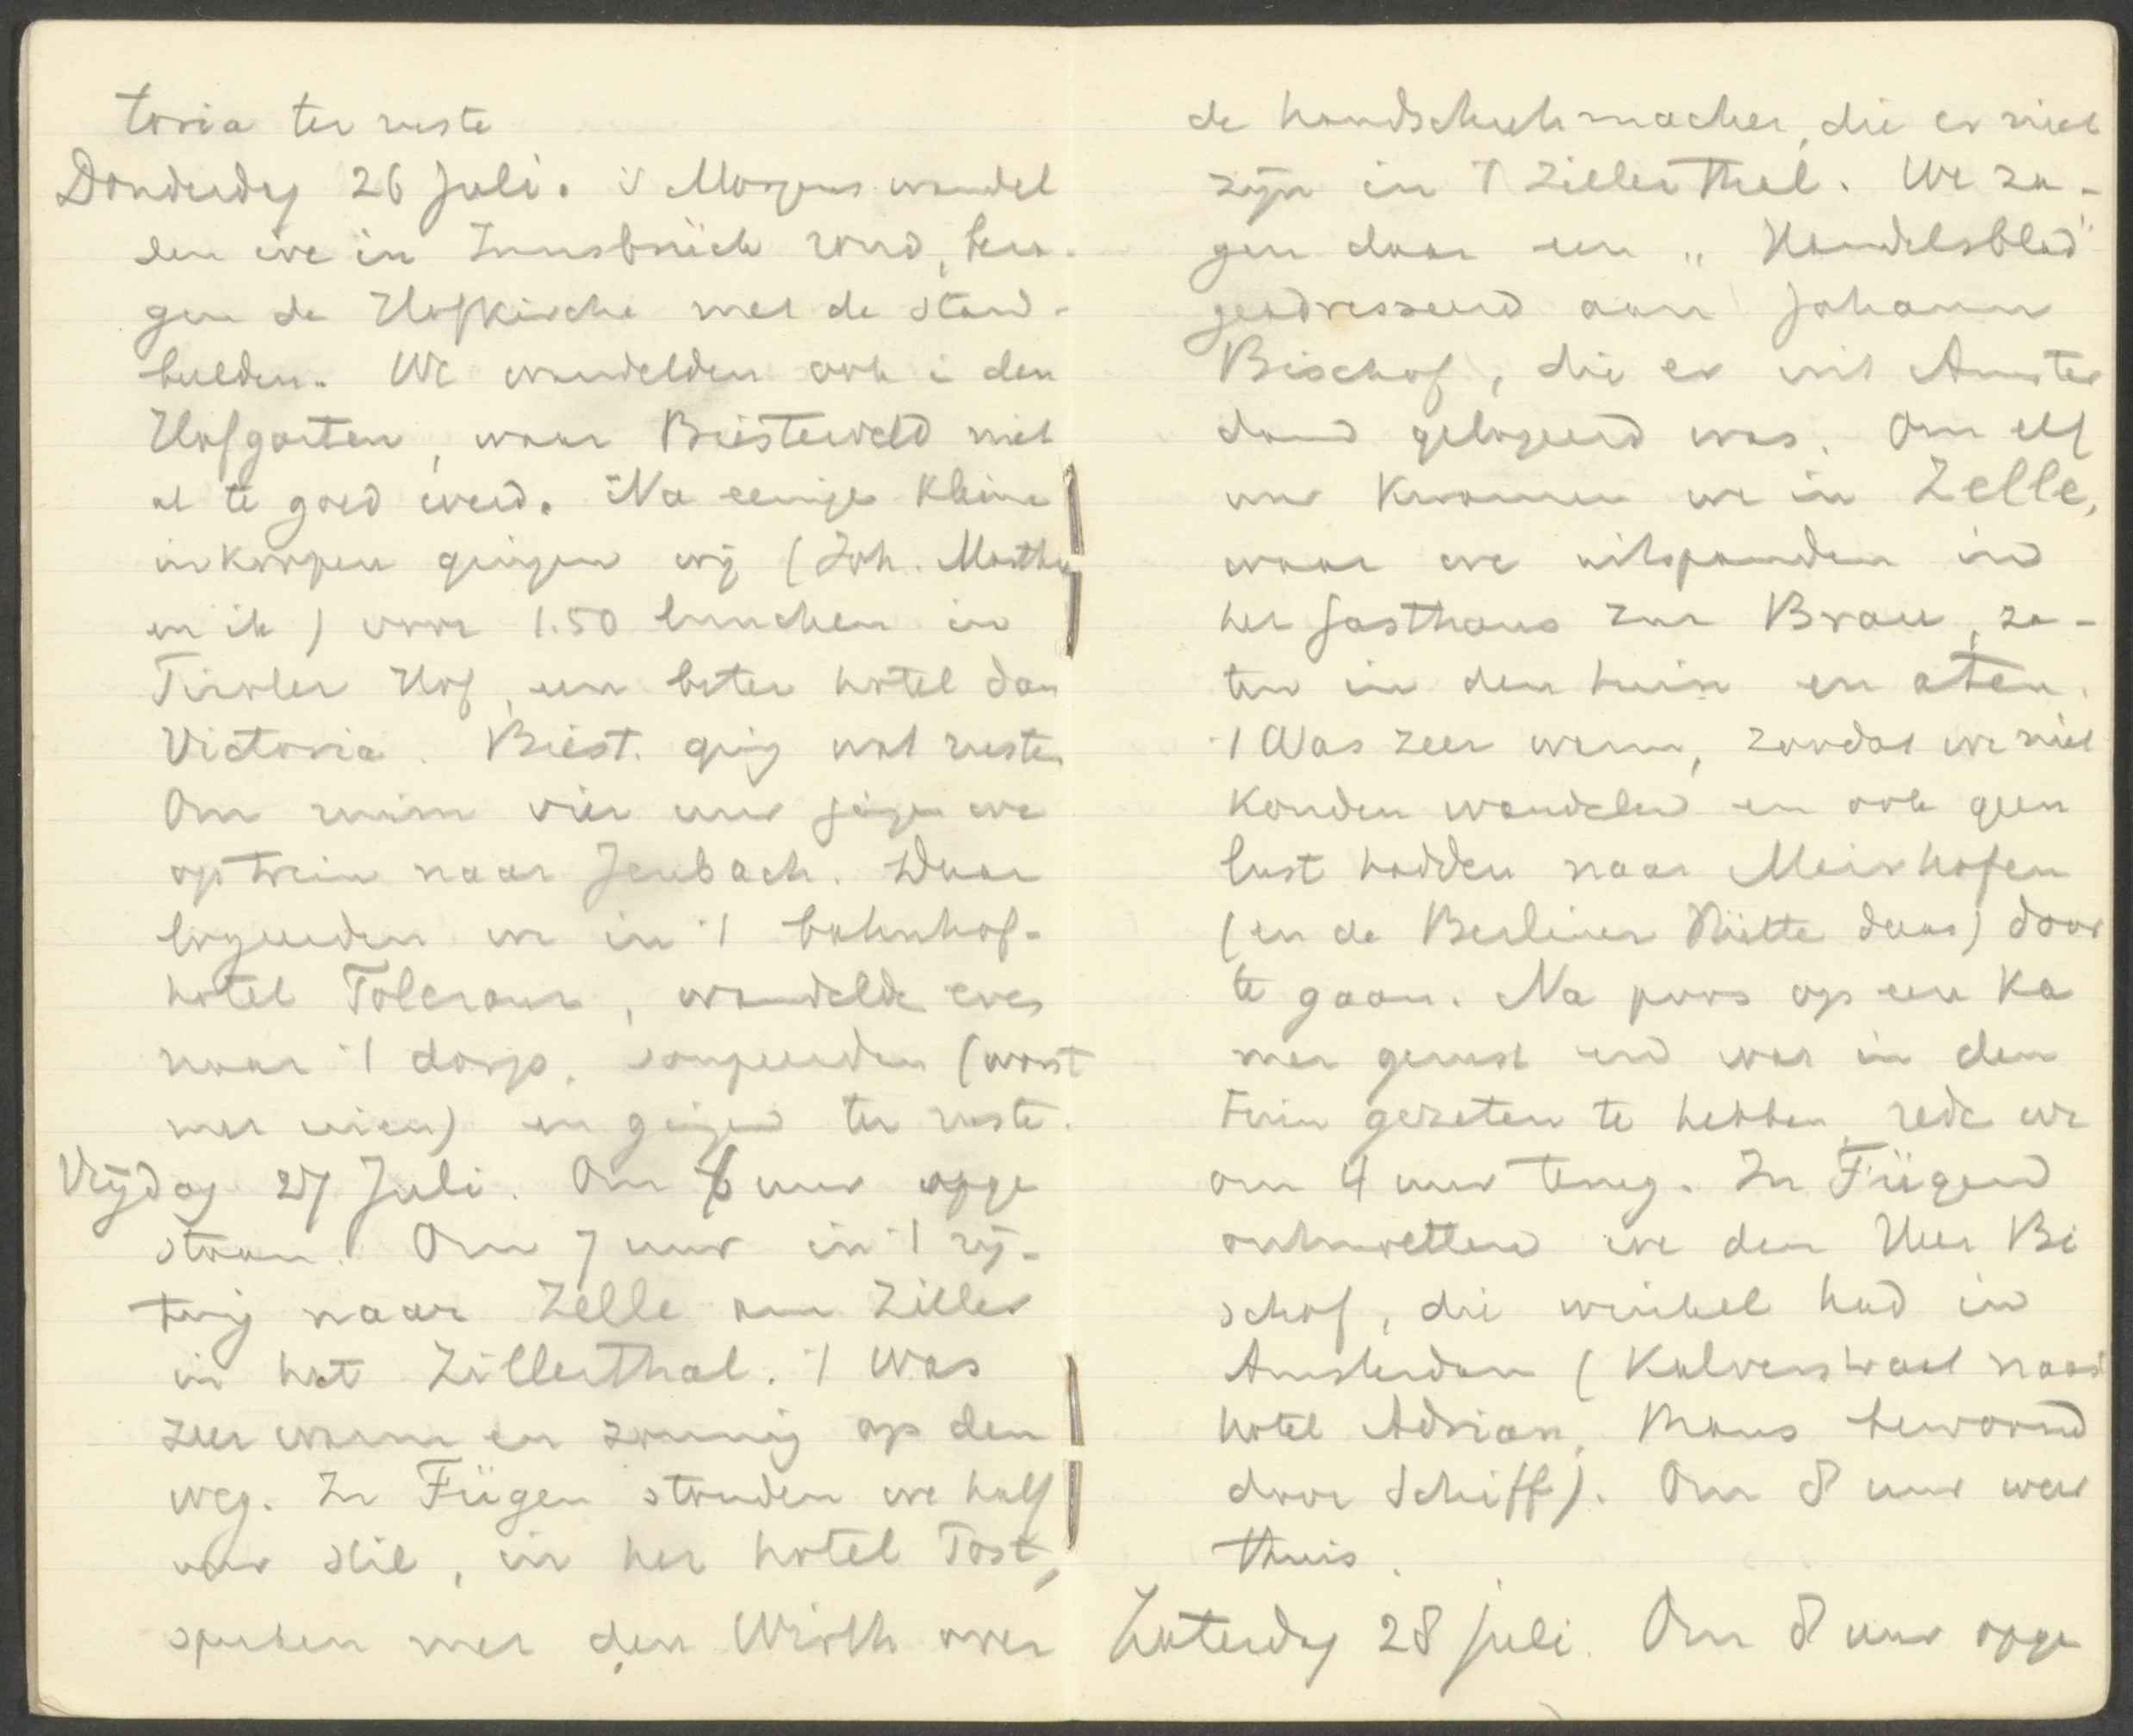 toria ter ruste
Donderdag 26 Juli. 's Morgens wandel
den we in Innsbrück rond, kre-
gen de Hofkirche met de stand-
beelden. We wandelden ook i den
Hofgarten, waar Biesterveld niet
al te goed werd. Na eenige kleine
inkoopen gingen wij (Joh. Martha
en ik) voor 1.50 lunchen in
Tiroler Hof, een beter hotel dan
Victoria. Biest. ging wat rusten
Om ruim vier uur gingen we
op trein naar Jenbach. Daar
logeerden we in 't bahnhof-
hotel Toleranz, wandelde even
naar 't dorp, soupeerden (worst
met uien) en gingen ter ruste.
Vrijdag 27 Juli. Om 6 uur opge
staan. Om 7 uur in 't rij-
tuig naar Zelle am Ziller
in het Zillerthal. 't Was
zeer warm en zonnig op den
weg. In Fügen stonden we half
uur stil, in het hotel Post,
spraken met den Wirth over
de handschuhmacher, die er niet
zijn in 't Zillerthal. We za-
gen daar een „Handelsblad"
geadresseerd aan Johann
Bischof, die er uit Amster
dam gelogeerd was. Om elf
uur kwamen we in Zelle,
waar we uitspanden in
het Gasthaus zur Brau, za-
ten in den tuin en aten.
't Was zeer warm, zoodat we niet
konden wandelen en ook geen
lust hadden naar Mairhofen
(en de Berliner Hütte daar) door
te gaan. Na poos op een ka
mer gerust en wat in den
tuin gezeten te hebben, rede we
om 4 uur terug. In Fügen
ontmoetten we den Heer Bi
schof, die winkel had in
Amsterdam (Kalverstraat naast
hotel Adrian, thans bewoond
door Schiff). Om 8 uur weer
thuis.
Zaterdag 28 Juli. Om 8 uur opge